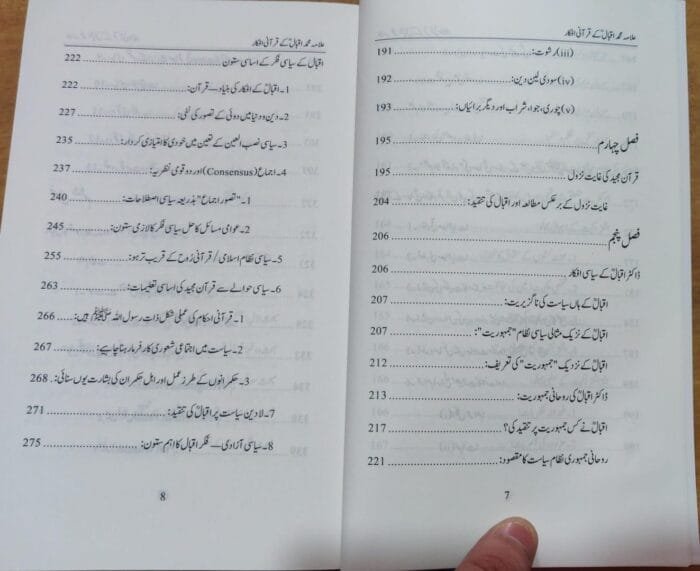 علامہ محمد اقبالؒ کے قرآنی افکار
(iii) رشوت: 191
(iv) سودی لین دین: 192
(v) چوری، جوا، شراب اور دیگر برائیاں: 193
فصل چہارم 195
قرآن مجید کی غایت نزول 195
غایت نزول کے برعکس مطالعہ اور اقبال کی تنقید: 204
فصل پنجم 206
ڈاکٹر اقبالؒ کے سیاسی افکار 206
اقبالؒ کے ہاں سیاست کی ناگزیریت: 207
اقبالؒ کے نزدیک مثالی سیاسی نظام "جمہوریت": 207
اقبالؒ کے نزدیک "جمہوریت" کی تعریف: 212
ڈاکٹر اقبالؒ کی روحانی جمہوریت: 213
اقبالؒ نے کس جمہوریت پر تنقید کی؟ 217
روحانی جمہوری نظام سیاست کا مقصود: 221
7
علامہ محمد اقبالؒ کے قرآنی افکار
اقبال کے سیاسی فکر کے اساسی ستون 222
1۔ اقبالؒ کے افکار کی بنیاد ہے قرآن: 222
2۔ دین و دنیا میں دوئی کے تصور کی نفی: 227
3۔ سیاسی نصب العین کے تعین میں خودی کا امتیازی کردار: 235
4۔ اجماع (Consensus) اور دو قومی نظریہ: 237
1۔ "تصور اجماع" بذریعہ سیاسی اصطلاحات: 240
2۔ عوامی مسائل کا حل سیاسی فکر کا لازمی ستون: 245
5۔ سیاسی نظام اسلامی / قرآنی رُوح کے قریب تر ہو: 255
6۔ سیاسی حوالے سے قرآن مجید کی اساسی تعلیمات: 263
1۔ قرآنی احکام کی عملی شکل ذاتِ رسول اللہ ﷺ ہیں: 266
2۔ سیاست میں اجتماعی شعوری کارفرما رہنا چاہیے: 267
3۔ حکمرانوں کے طرز عمل اور اہل حکمران کی بشارت یوں سنائی: 268
7۔ لادین سیاست پر اقبالؒ کی تنقید: 271
8۔ سیاسی آزادی — فکر اقبال کا اہم ستون: 275
8